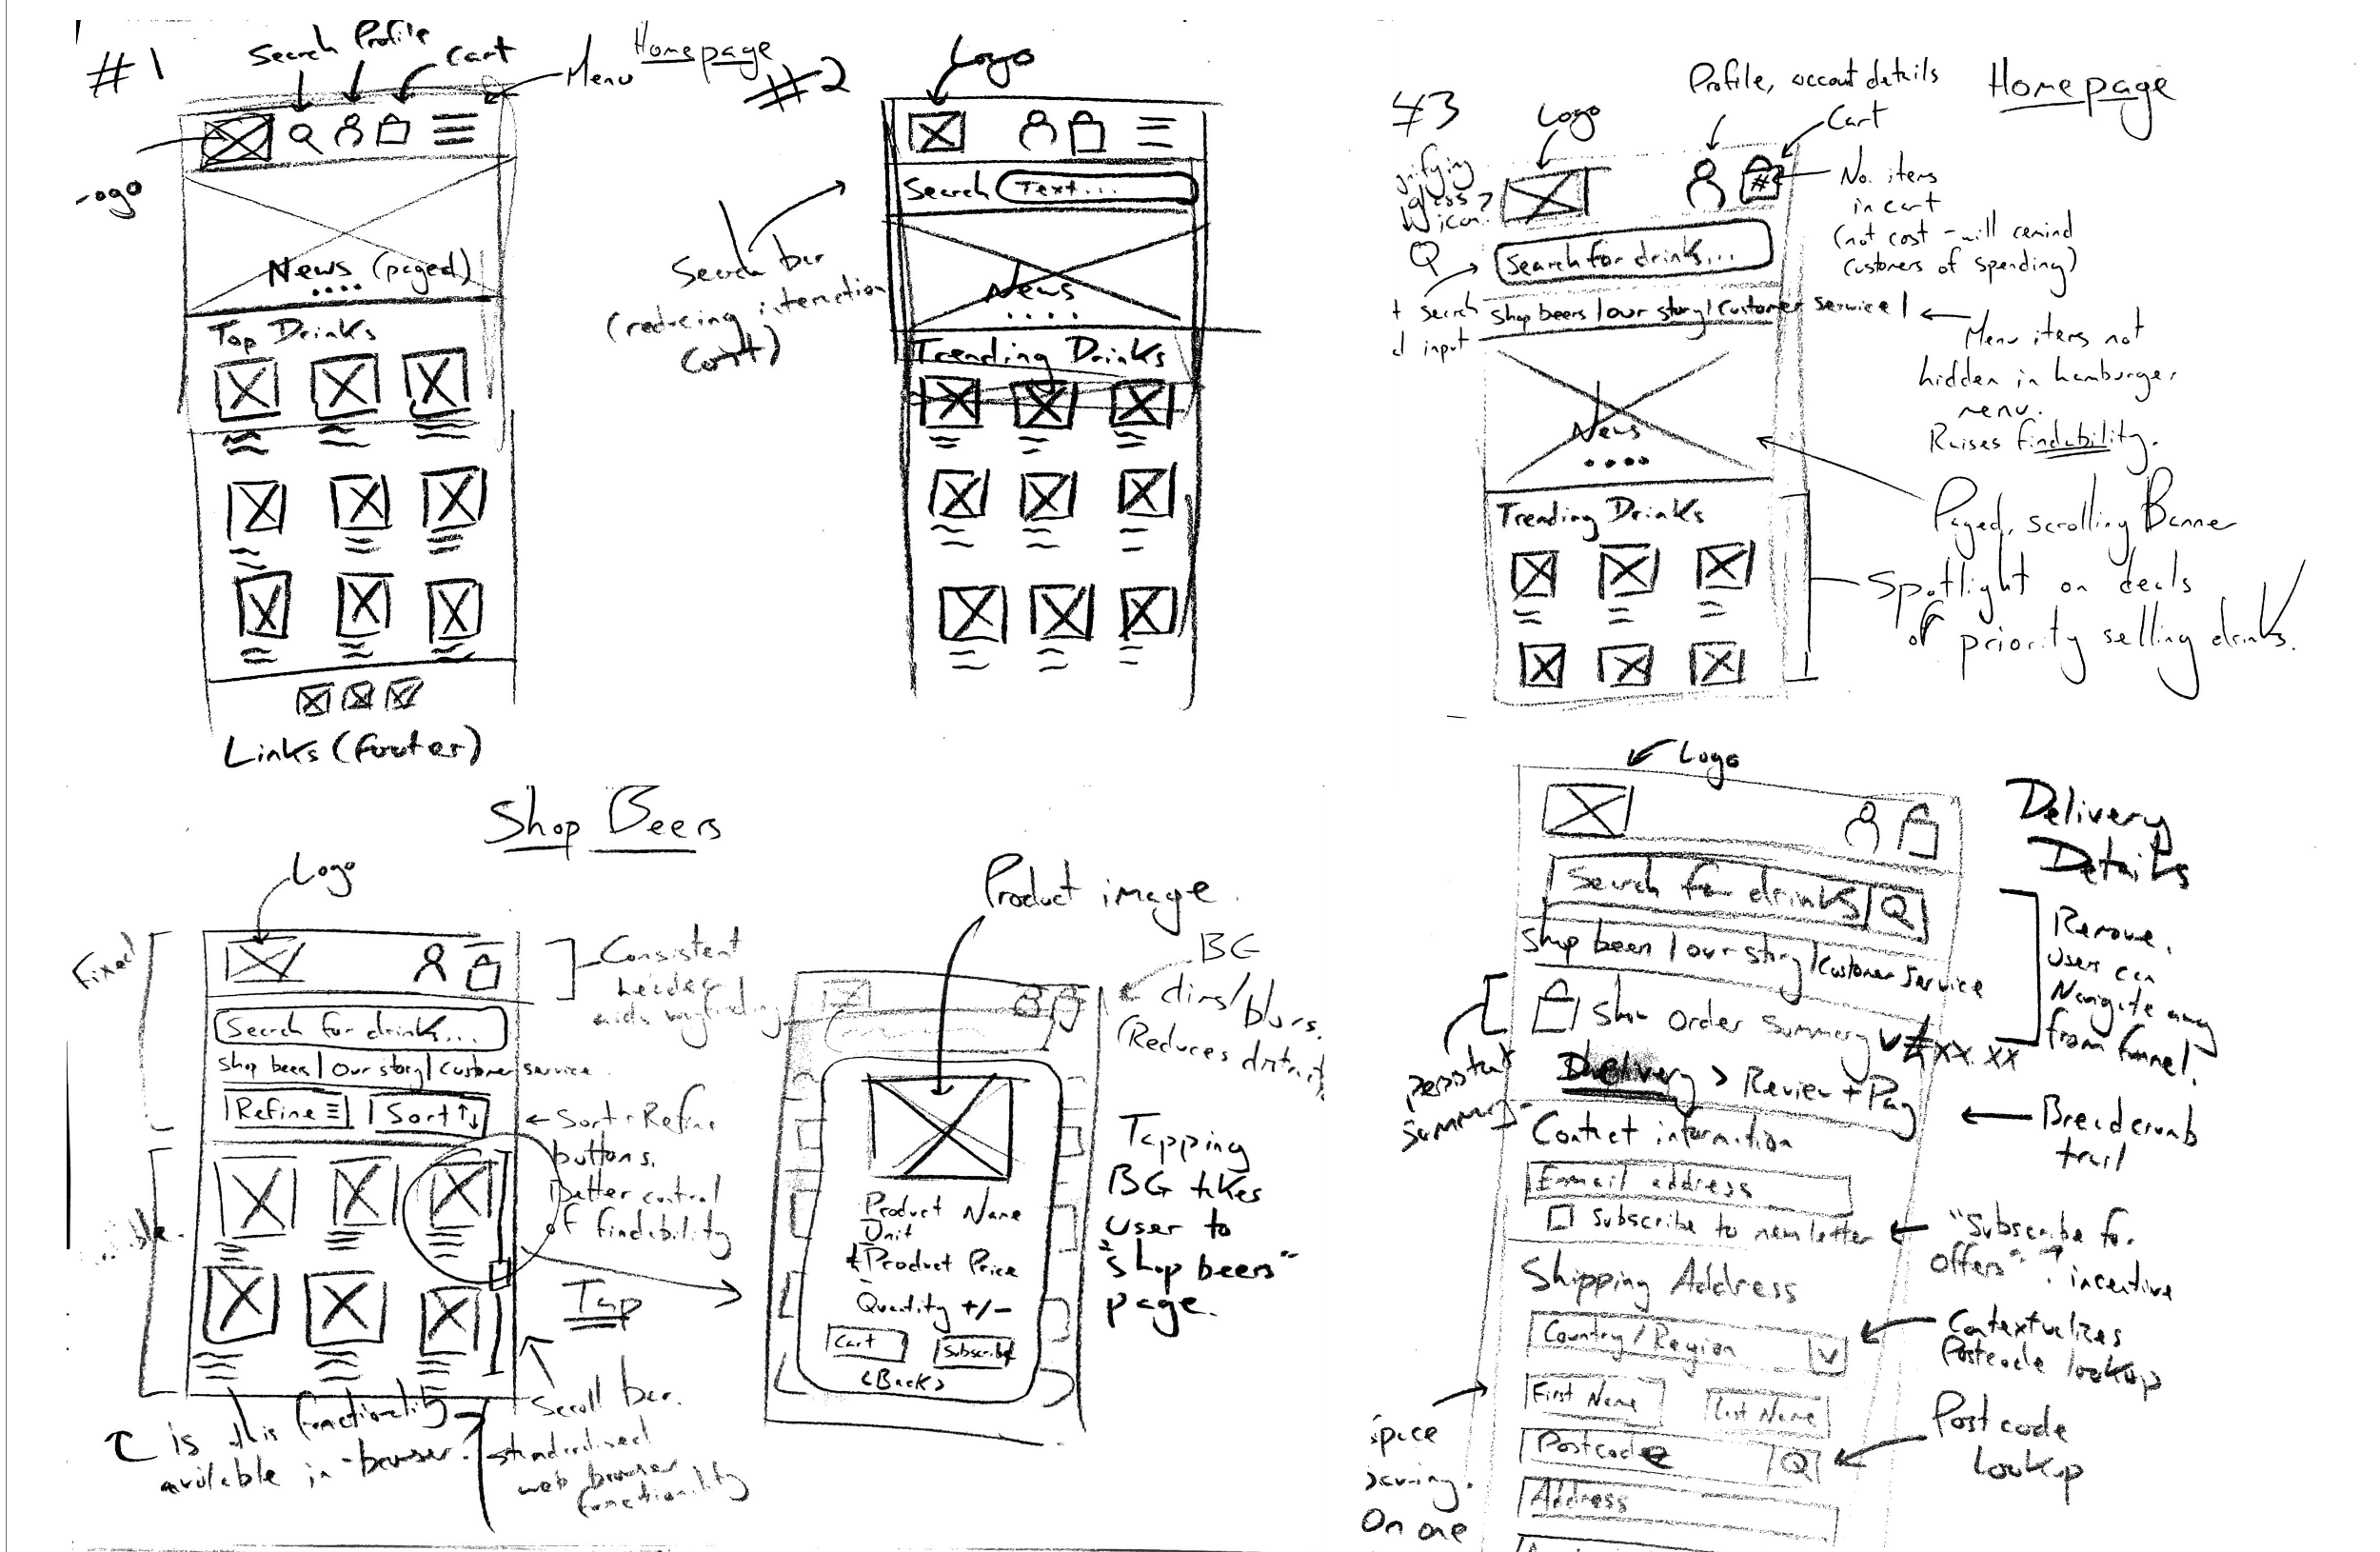 #1
Search Profile
Cart
Menu
Homepage
News (paged)
Top Drinks
Links (footer)
#2
Logo
Search Text...
Search bar
(reducing interaction
cost)
News
Trending Drinks
#3
Homepage
Logo
Profile, account details
Cart
No. items
in cart
(not cost - will remind
customers of spending)
icon.
Search for drinks...
search
input
Shop beers | our story | Customer service |
Menu items not
hidden in hamburger
menu.
Raises findability.
News
Paged, scrolling Banner
Trending Drinks
Spotlight on deals
of priority selling drinks.
Shop Beers
Logo
Fixed
Consistent
header
aids wayfinding
Search for drinks...
Shop beers | Our story | Customer service
Refine
Sort
Sort + Refine
buttons.
Better control
of findability
Tap
Scroll bar.
standardised
web browser
functionality
is this functionality
available in-browser.
Product image.
BG
dims/blurs.
(Reduces distract
Product Name
Unit
Product Price
Quantity +/-
Cart
Subscribe
<Back>
Tapping
BG takes
user to
"shop beers"
page.
Logo
Delivery
Details
Search for drinks
Shop beers | our story | Customer service
Remove.
Users can
Navigate away
from funnel!
Order Summary £xx.xx
Persistent
Summary
Delivery > Review + Pay
Breadcrumb
trail
Contact information
Email address
Subscribe to newsletter
"Subscribe for
offers"
incentive
Shipping Address
Country/Region
Contextualizes
Postcode lookup
First Name
Last Name
space
saving.
On one
Postcode
Postcode
Lookup
Address